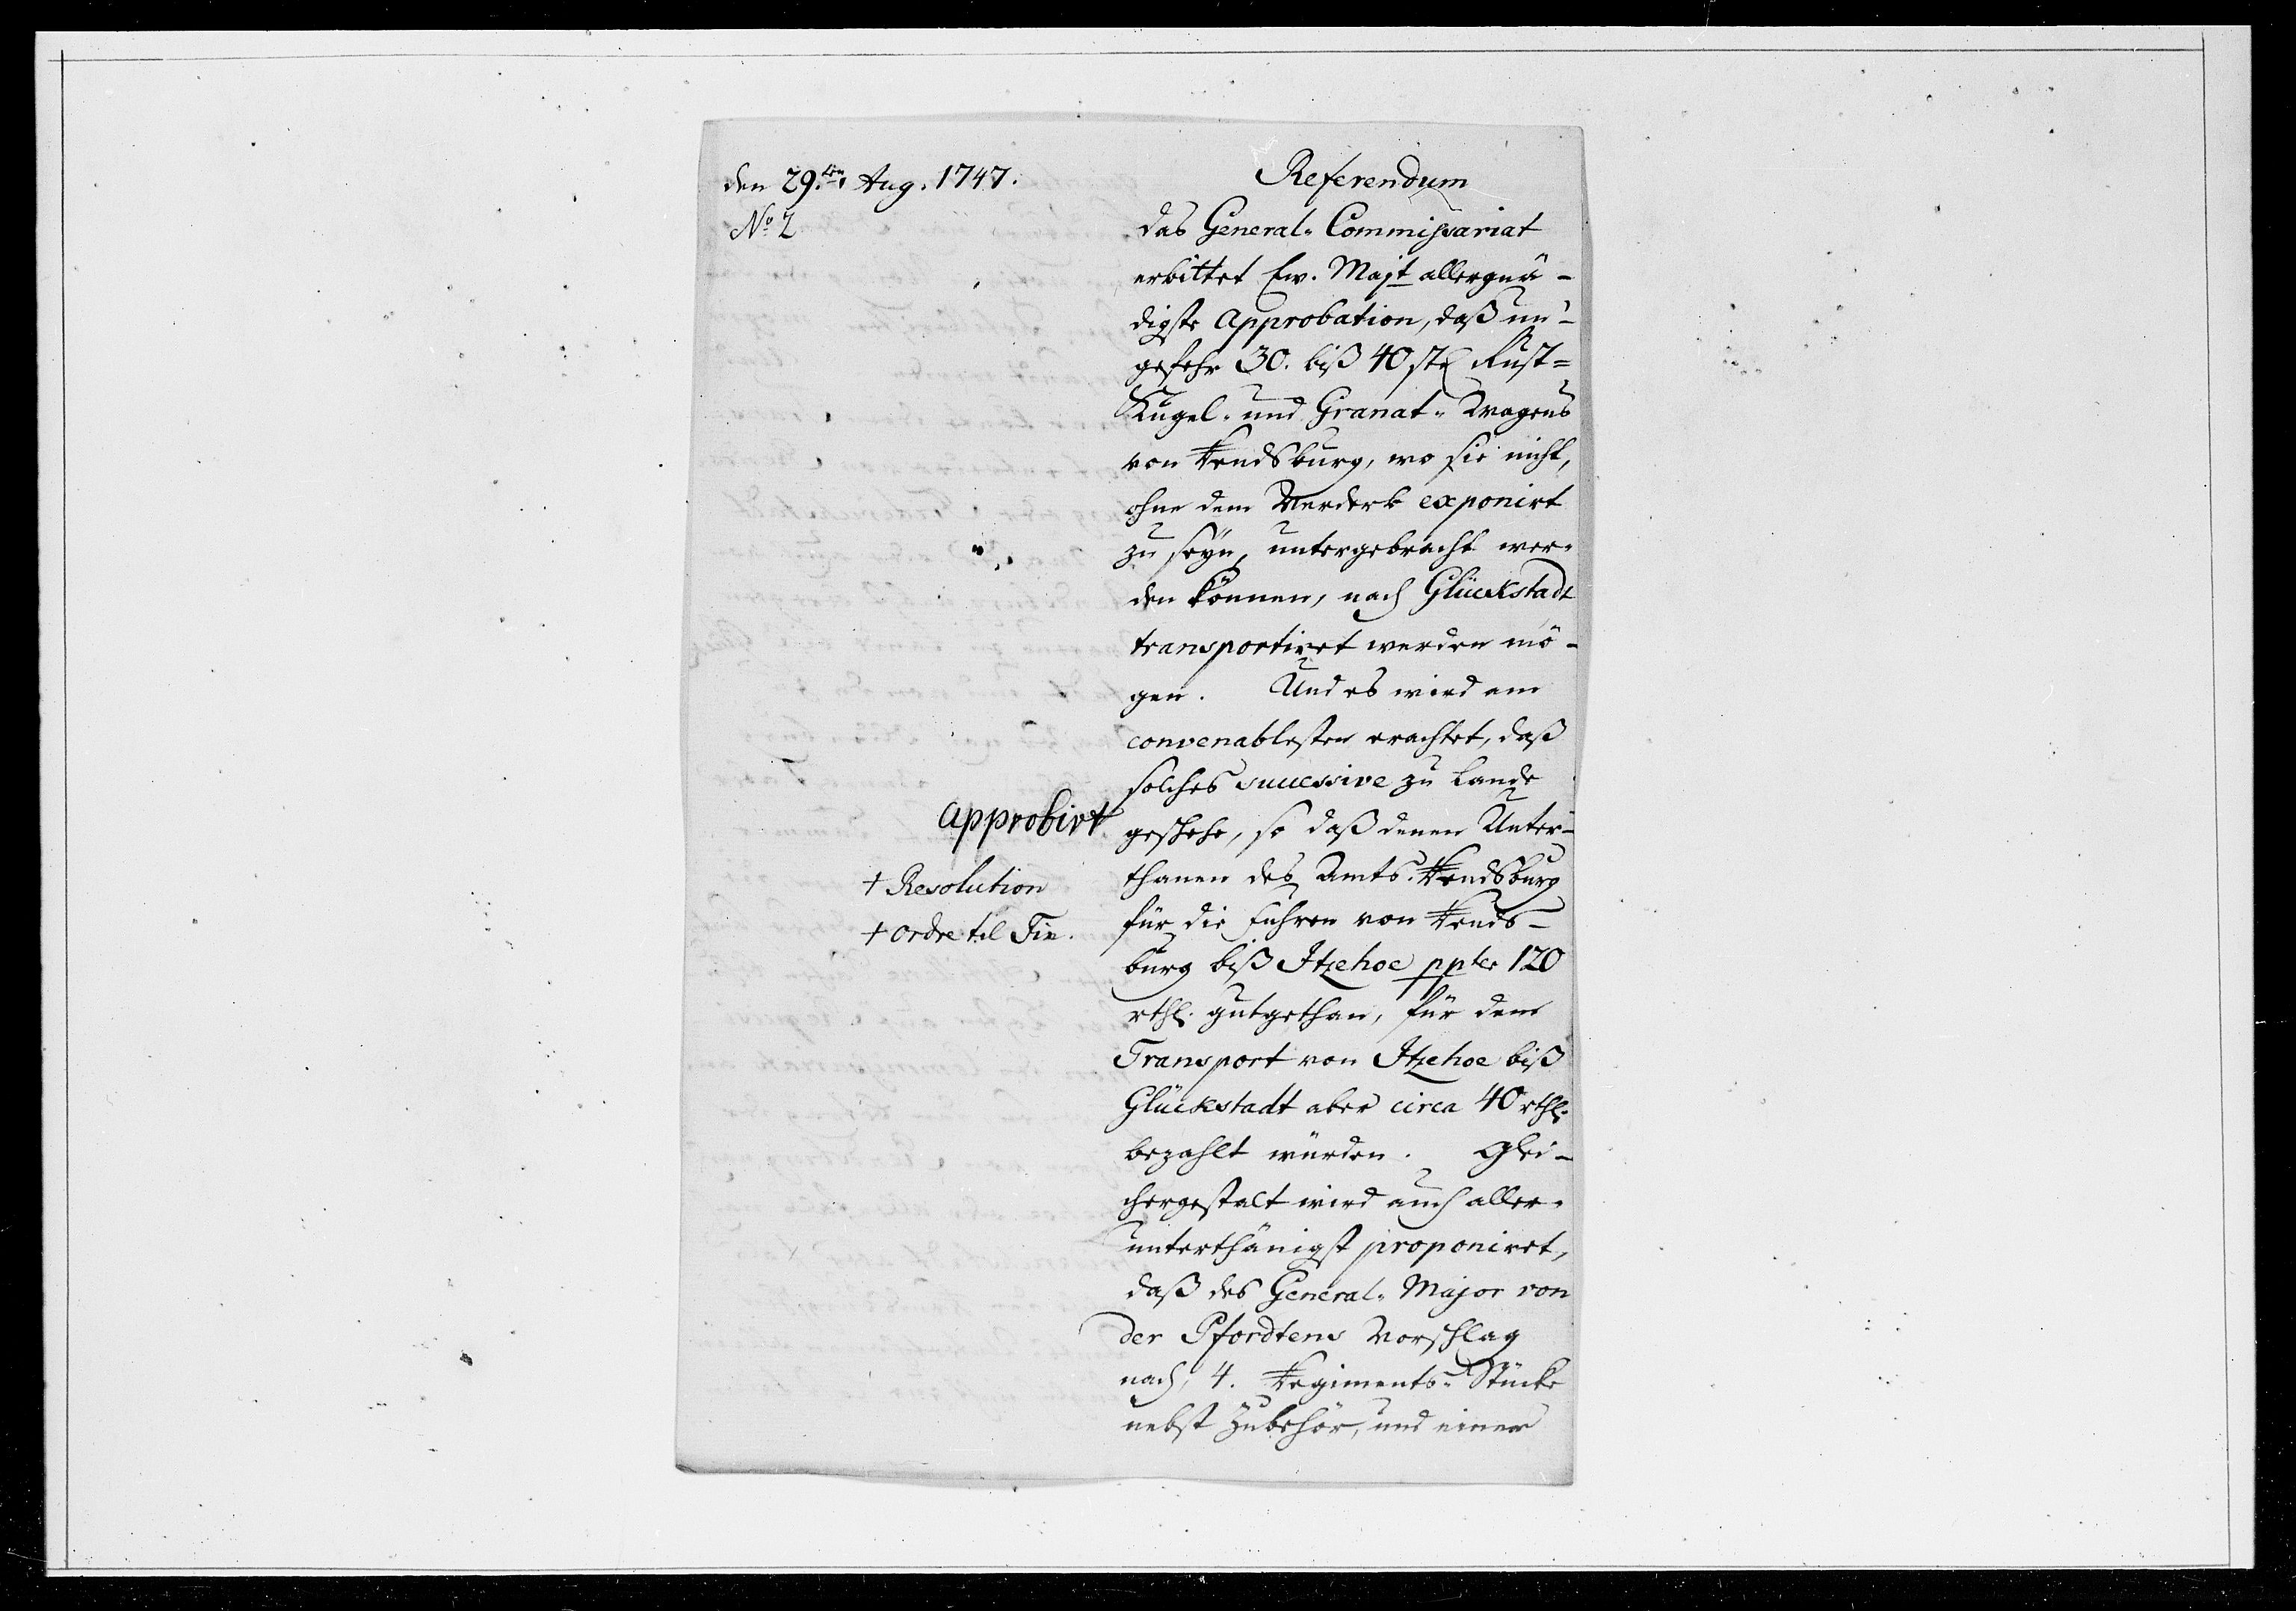 den 29.ten Aug. 1747.
No 2
Referendum
das General-Commissariat
erbittet Ew. Majt allergnä-
digste Approbation, daß un-
gefehr 30. biß 40 stk Rust=
Kugel- und Granat-Wagens
von Rendsburg, wo sie nicht,
ohne dem Verderb exponirt
zu seyn, untergebracht wer-
den können, nach Glückstadt
transportiret werden mö-
gen. Und es wird am
convenablesten erachtet, daß
solches successive zu Lande
geschehe, so daß denen Unter-
thanen des Amts Rendsburg
für die Fuhren von Rends-
burg biß Itzehoe ppter 120
rthl. gutgethan, für dem
Transport von Itzehoe biß
Glückstadt aber circa 40 rthl.
bezahlt würden. Glei-
chergestalt wird auch aller-
unterthänigst proponiret,
daß des General-Major von
der Pfordtens Vorschlag
nach, 4. Regiments-Stücke
nebst Zubehör, und einer
approbirt
† Resolution
† ordre til Fin.